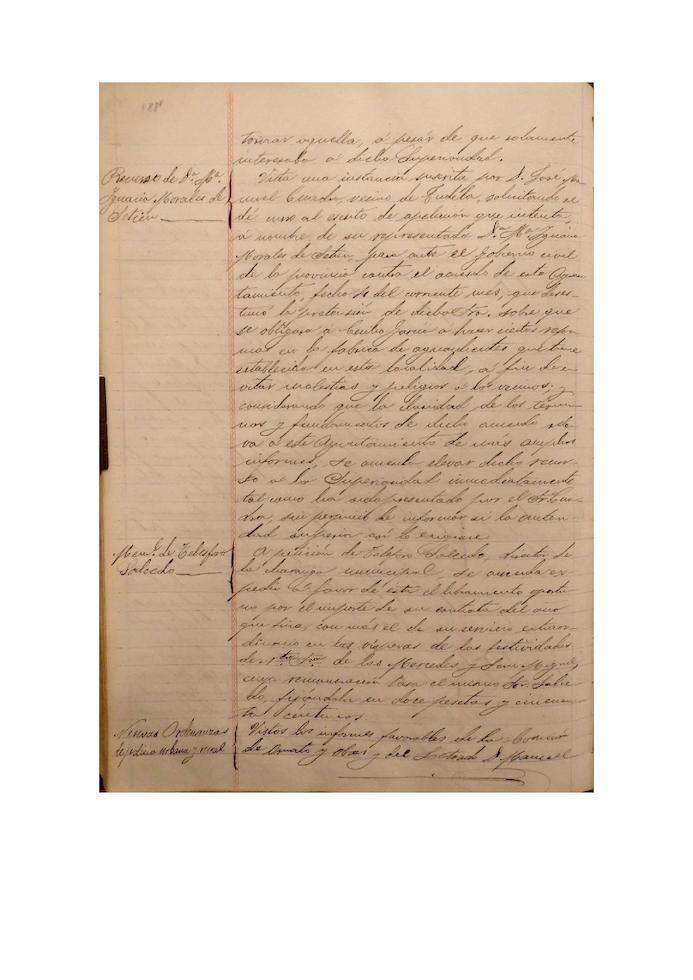 188
tomar aquella, á pesar de que solamente
interesaba á dicha Superioridad.
Recurso de Dª. Mª.
Ignacia Morales de
Setien
Vista una instancia suscrita por D. José Ma-
nuel Cuadra, vecino de Tudela, solicitando se
dé curso al escrito de apelación que intenta,
á nombre de su representada Dª. Mª. Ignacia
Morales de Setien, para ante el Gobierno civil
de la provincia contra el acuerdo de este Ayun-
tamiento, fecha del corriente mes, que deses-
timó la pretensión de dicha Sra. sobre que
se obligara á García á hacer ciertas refor-
mas en la fábrica de aguardientes que tiene
establecida en esta localidad, á fin de e-
vitar molestias y peligros á los vecinos; y
considerando que la claridad de los térmi-
nos y fundamentos de dicho acuerdo rele-
va á este Ayuntamiento de mas amplios
informes, se acuerda elevar dicho recur-
so á la Superioridad inmediatamente
tal como ha sido presentado por el Sr. Cua-
dra, sin perjuicio de informar si la autori-
dad superior así lo exigiere.
Mem. de Telesforo
Salcedo
A petición de Telesforo Salcedo, director de
la charanga municipal se acuerda ex-
pedir á favor de este el libramiento oportu-
no por el importe de su contrata del año
que fina, con más el de su servicio extraor-
dinario en las vísperas de las festividades
de Ntra. Sra. de las Mercedes y San Miguel,
cuya remuneración tasa el mismo Sr. Salce-
do, fijándola en doce pesetas y cincuen-
ta céntimos.
Nuevas Ordenanzas
de policía urbana y rural
Vistos los informes favorables de la Comisión
de Ornato y obras y del Letrado D. Manuel